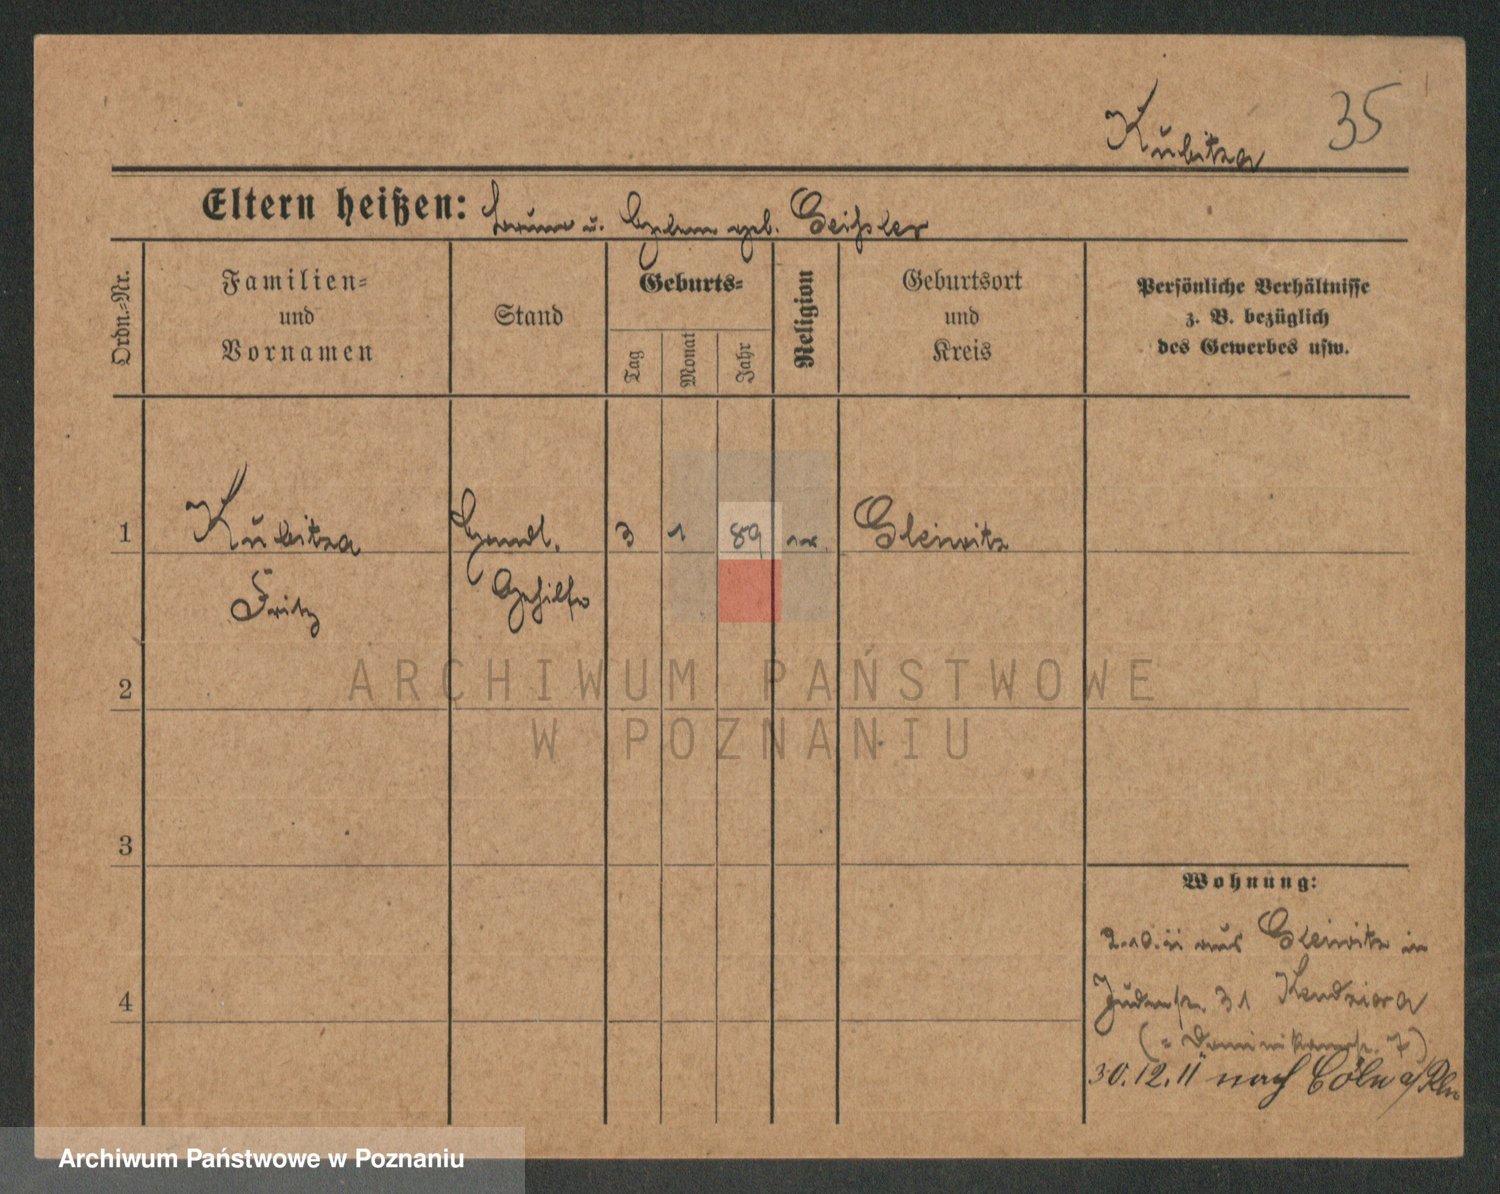 Kubitza 35
Eltern heißen: u. geb. Geißler
Ordn.-Nr.
Familien-
und
Vornamen
Stand
Geburts-
Tag
Monat
Jahr
Religion
Geburtsort
und
Kreis
Persönliche Verhältnisse
z. B. bezüglich
des Gewerbes usw.
1 Kubitza Handl. 3 1 89 Gleiwitz
Fritz Gehilfe
ARCHIWUM PAŃSTWOWE
2
W POZNANIU
3
Wohnung:
2.10.11 aus Gleiwitz in
4
Judenstr. 31 Kendziora
(= Dominikanerstr. 7)
30.12.11 nach Cöln a/Rhn
Archiwum Państwowe w Poznaniu